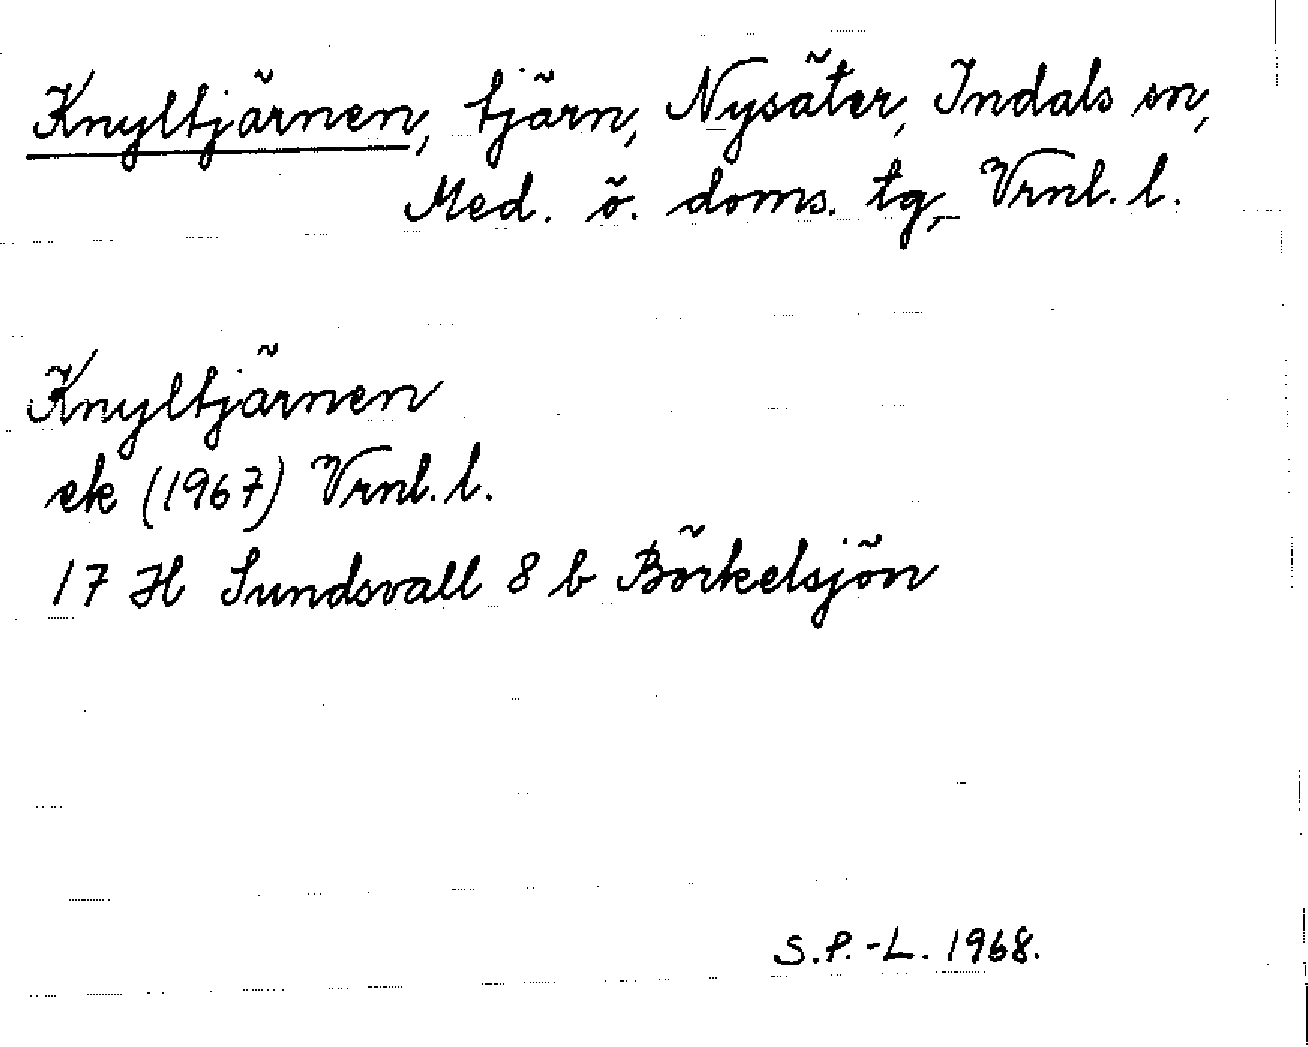 Knyltjärnen, tjärn, Nysäter, Indals sn,
Med. ö. doms. tg, Vrnl. l.
Knyltjärnen
ek (1967) Vrnl. l.
17 H Sundsvall 8 b Börkelsjön
S.P.-L. 1968.